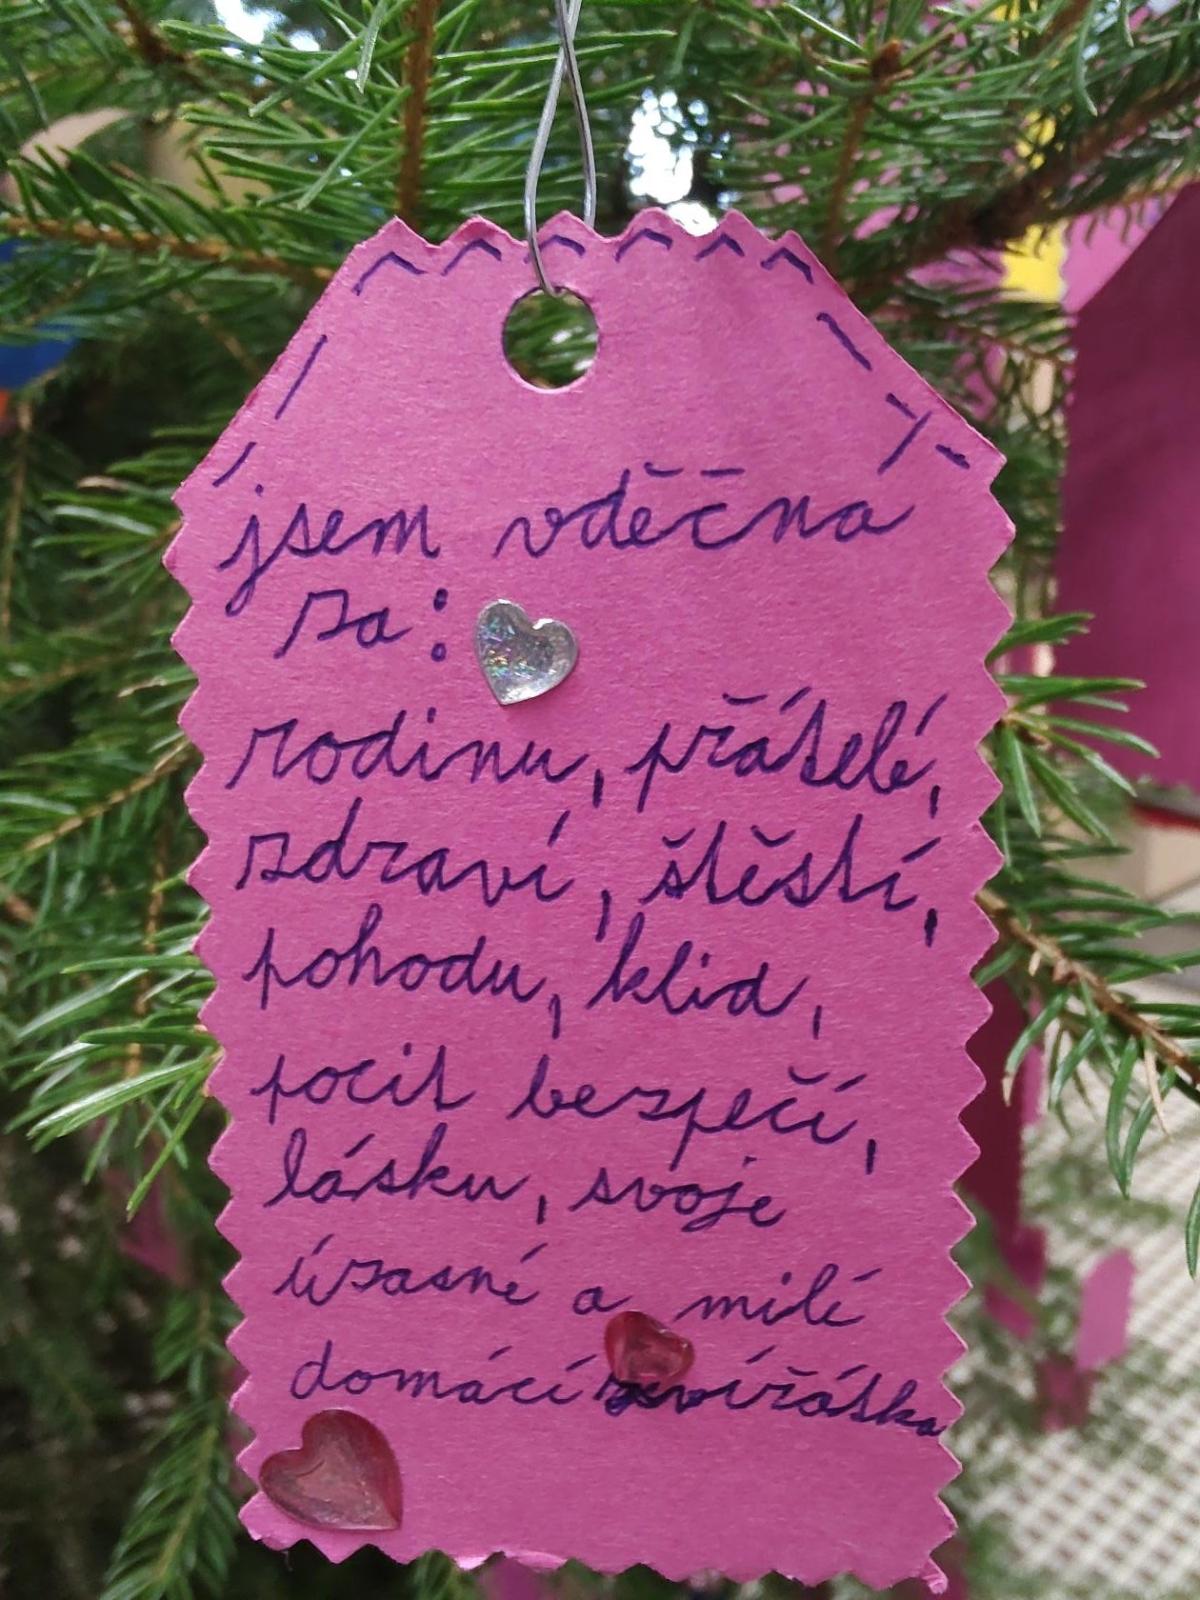 jsem vděčná
za:
rodinu, přátelé,
zdraví, štěstí,
pohodu, klid,
pocit bezpečí,
lásku, svoje
úžasné a milé
domácí zvířátka